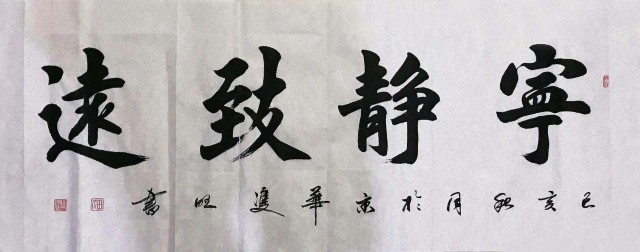 寧静致遠
己亥秋月於京華雙旺書